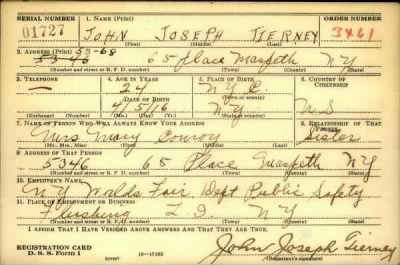 SERIAL NUMBER 1. NAME (Print) ORDER NUMBER
01727 JOHN JOSEPH TIERNEY 3461
(First) (Middle) (Last)
2. ADDRESS (Print) 53-68
5346 65 Place Maspeth NY
(Number and street or R. F. D. number) (Town) (County) (State)
3. TELEPHONE 4. AGE IN YEARS 5. PLACE OF BIRTH 6. COUNTRY OF CITIZENSHIP
— 24 N.Y.C.
DATE OF BIRTH
4/5/16 NY U.S.
(Exchange) (Number) (Mo.) (Day) (Yr.) (Town or county) (State or country)
7. NAME OF PERSON WHO WILL ALWAYS KNOW YOUR ADDRESS 8. RELATIONSHIP OF THAT PERSON
Mrs Mary Conroy Sister
(Mr., Mrs., Miss) (First) (Middle) (Last)
9. ADDRESS OF THAT PERSON
5346 65 Place Maspeth NY
(Number and street or R. F. D. number) (Town) (County) (State)
10. EMPLOYER'S NAME
NY Worlds Fair Dept Public Safety
11. PLACE OF EMPLOYMENT OR BUSINESS
Flushing L.I. NY
(Number and street or R. F. D. number) (Town) (County) (State)
I AFFIRM THAT I HAVE VERIFIED ABOVE ANSWERS AND THAT THEY ARE TRUE.
REGISTRATION CARD
D. S. S. Form 1 (over) John Joseph Tierney
(Registrant's signature)